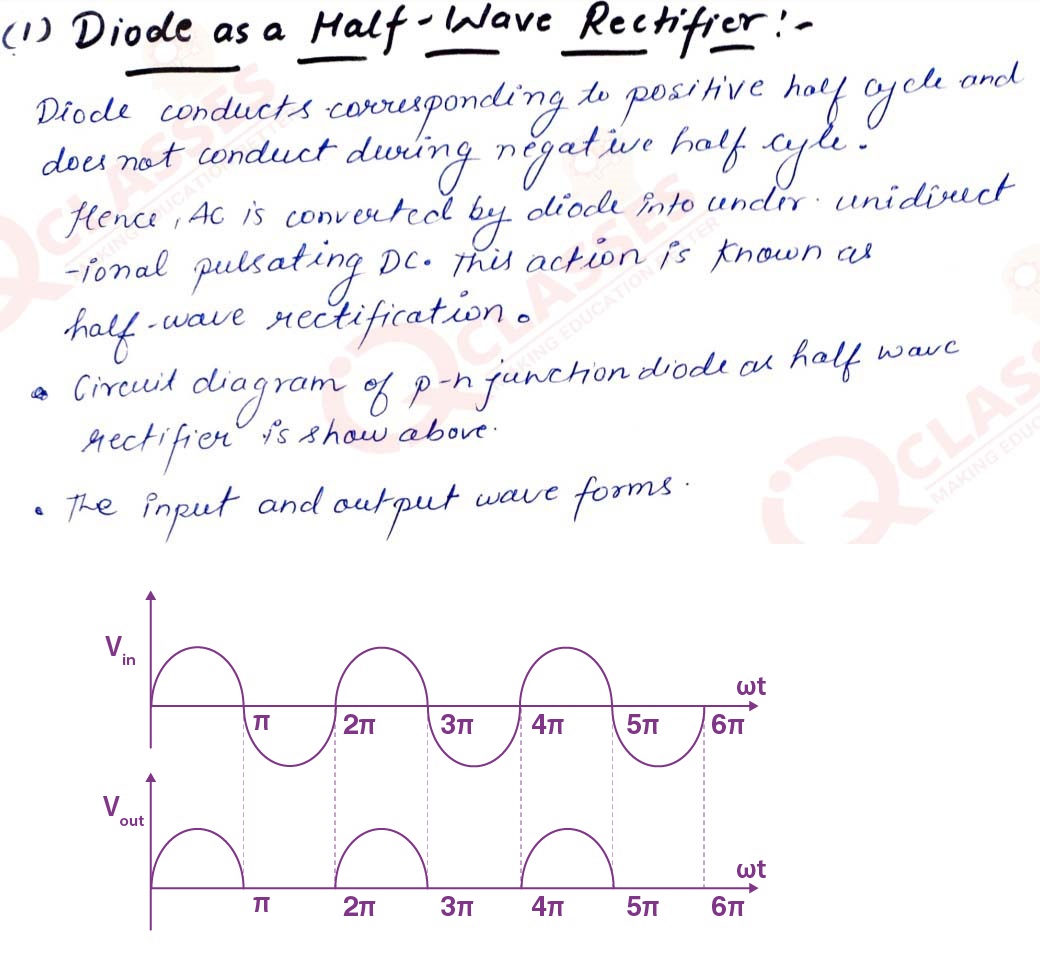 (1) Diode as a Half-Wave Rectifier:-
Diode conducts corresponding to positive half cycle and
does not conduct during negative half cyle.
Hence, AC is converted by diode into under unidirect
-ional pulsating DC. This action is known as
half-wave rectification.
• Circuit diagram of p-n junction diode as half wave
rectifier is show above.
• The input and output wave forms.
QCLASSES
MAKING EDUCATION BETTER
Vin
ωt
π 2π 3π 4π 5π 6π
Vout
ωt
π 2π 3π 4π 5π 6π